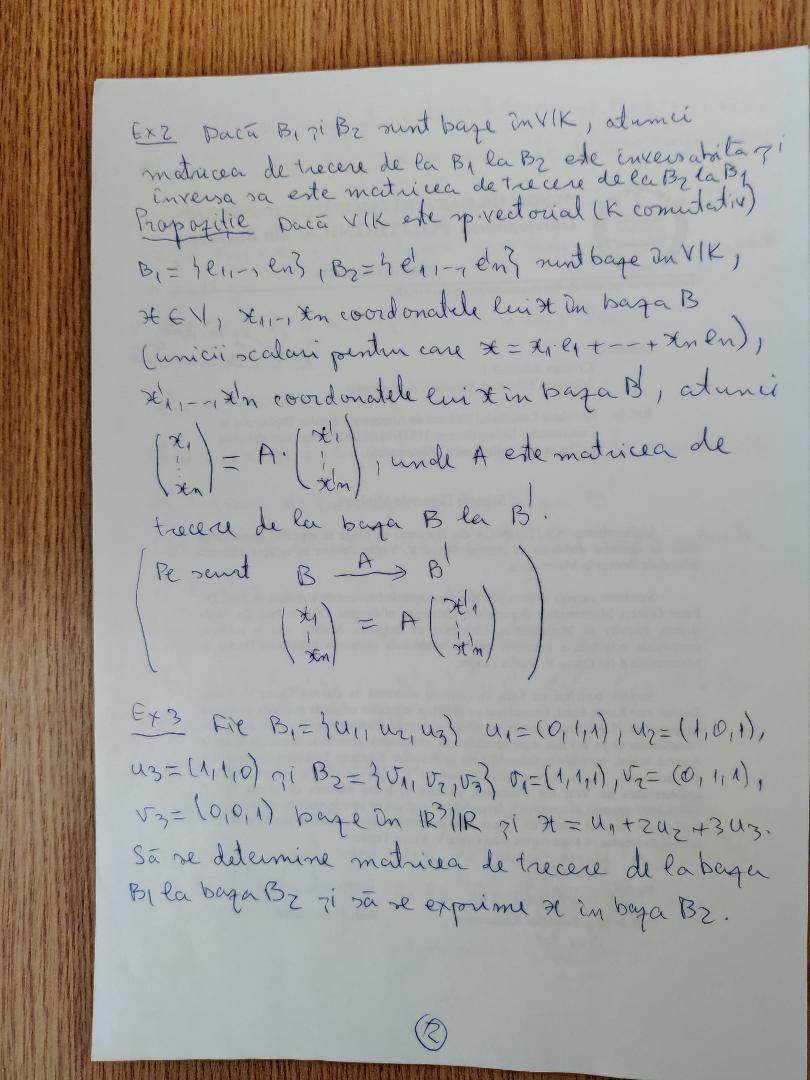 Ex2 Dacă B₁ și B₂ sunt baze în V/K, atunci
matricea de trecere de la B₁ la B₂ este inversabilă și
inversa sa este matricea de trecere de la B₂ la B₁
Propoziție Dacă V/K este sp. vectorial (K comutativ)
B₁ = {e₁, --, eₙ}, B₂ = {e'₁, --, e'ₙ} sunt baze în V/K,
x ∈ V, x₁, --, xₙ coordonatele lui x în baza B
(unicii scalari pentru care x = x₁·e₁ + --- + xₙeₙ),
x'₁, --, x'ₙ coordonatele lui x în baza B', atunci
(x₁ ⋮ xₙ) = A·(x'₁ ⋮ x'ₙ), unde A este matricea de
trecere de la baza B la B'.
(Pe scurt B —A→ B'
(x₁ ⋮ xₙ) = A (x'₁ ⋮ x'ₙ))
Ex3 Fie B₁ = {u₁, u₂, u₃} u₁ = (0,1,1), u₂ = (1,0,1),
u₃ = (1,1,0) și B₂ = {v₁, v₂, v₃} v₁ = (1,1,1), v₂ = (0,1,1),
v₃ = (0,0,1) baze în ℝ³/ℝ și x = u₁ + 2u₂ + 3u₃.
Să se determine matricea de trecere de la baza
B₁ la baza B₂ și să se exprime x în baza B₂.
12